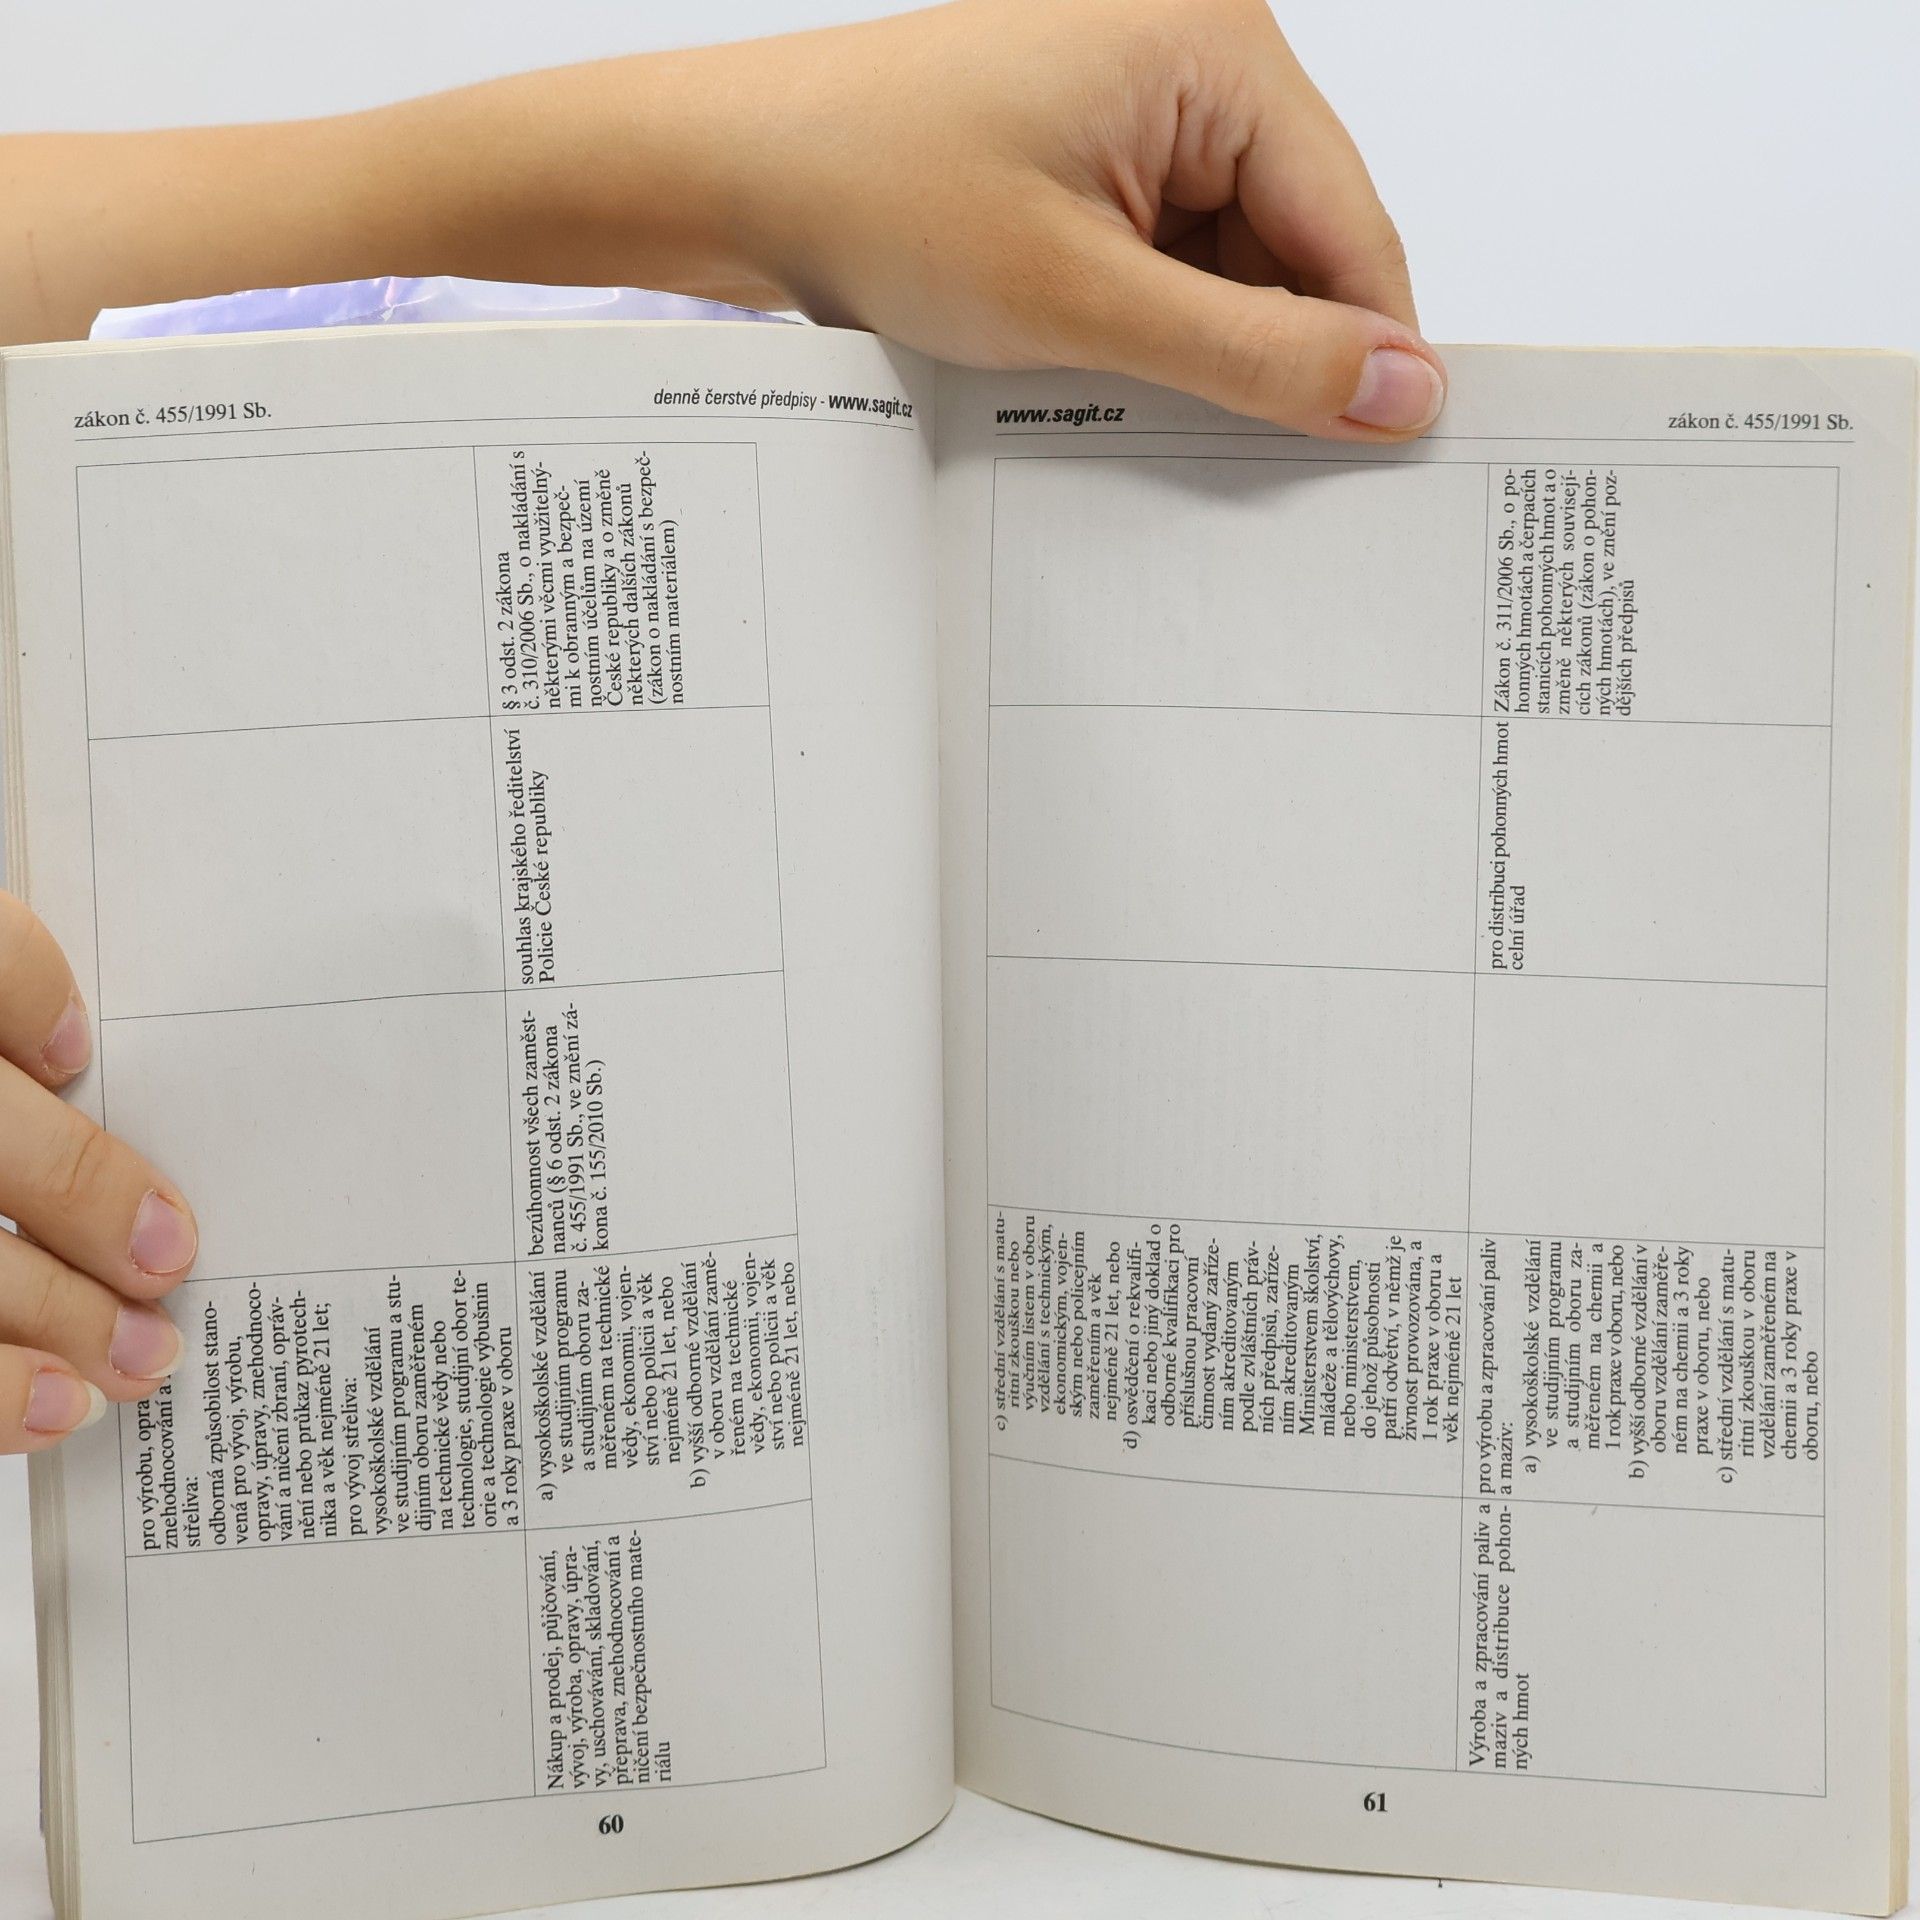 zákon č. 455/1991 Sb.
denně čerstvé předpisy - www.sagit.cz
pro výrobu, opra
znehodnocování a
střeliva:
odborná způsobilost stano-
vená pro vývoj, výrobu,
opravy, úpravy, znehodnoco-
vání a ničení zbraní, opráv-
nění nebo průkaz pyrotech-
nika a věk nejméně 21 let;
pro vývoj střeliva:
vysokoškolské vzdělání
ve studijním programu a stu-
dijním oboru zaměřeném
na technické vědy nebo
technologie, studijní obor te-
orie a technologie výbušnin
a 3 roky praxe v oboru
Nákup a prodej, půjčování,
vývoj, výroba, opravy, úpra-
vy, uschovávání, skladování,
přeprava, znehodnocování a
ničení bezpečnostního mate-
riálu
a) vysokoškolské vzdělání
ve studijním programu
a studijním oboru za-
měřeném na technické
vědy, ekonomii, vojen-
ství nebo policii a věk
nejméně 21 let, nebo
b) vyšší odborné vzdělání
v oboru vzdělání zamě-
řeném na technické
vědy, ekonomii, vojen-
ství nebo policii a věk
nejméně 21 let, nebo
bezúhonnost všech zaměst-
nanců (§ 6 odst. 2 zákona
č. 455/1991 Sb., ve znění zá-
kona č. 155/2010 Sb.)
souhlas krajského ředitelství
Policie České republiky
§ 3 odst. 2 zákona
č. 310/2006 Sb., o nakládání s
některými věcmi využitelný-
mi k obranným a bezpeč-
nostním účelům na území
České republiky a o změně
některých dalších zákonů
(zákon o nakládání s bezpeč-
nostním materiálem)
60
www.sagit.cz
zákon č. 455/1991 Sb.
c) střední vzdělání s matu-
ritní zkouškou nebo
výučním listem v oboru
vzdělání s technickým,
ekonomickým, vojen-
ským nebo policejním
zaměřením a věk
nejméně 21 let, nebo
d) osvědčení o rekvalifi-
kaci nebo jiný doklad o
odborné kvalifikaci pro
příslušnou pracovní
činnost vydaný zaříze-
ním akreditovaným
podle zvláštních práv-
ních předpisů, zaříze-
ním akreditovaným
Ministerstvem školství,
mládeže a tělovýchovy,
nebo ministerstvem,
do jehož působnosti
patří odvětví, v němž je
živnost provozována, a
1 rok praxe v oboru a
věk nejméně 21 let
Výroba a zpracování paliv a
maziv a distribuce pohon-
ných hmot
pro výrobu a zpracování paliv
a maziv:
a) vysokoškolské vzdělání
ve studijním programu
a studijním oboru za-
měřeném na chemii a
1 rok praxe v oboru, nebo
b) vyšší odborné vzdělání v
oboru vzdělání zaměře-
ném na chemii a 3 roky
praxe v oboru, nebo
c) střední vzdělání s matu-
ritní zkouškou v oboru
vzdělání zaměřeném na
chemii a 3 roky praxe v
oboru, nebo
pro distribuci pohonných hmot
celní úřad
Zákon č. 311/2006 Sb., o po-
honných hmotách a čerpacích
stanicích pohonných hmot a o
změně některých souvisejí-
cích zákonů (zákon o pohon-
ných hmotách), ve znění poz-
dějších předpisů
61